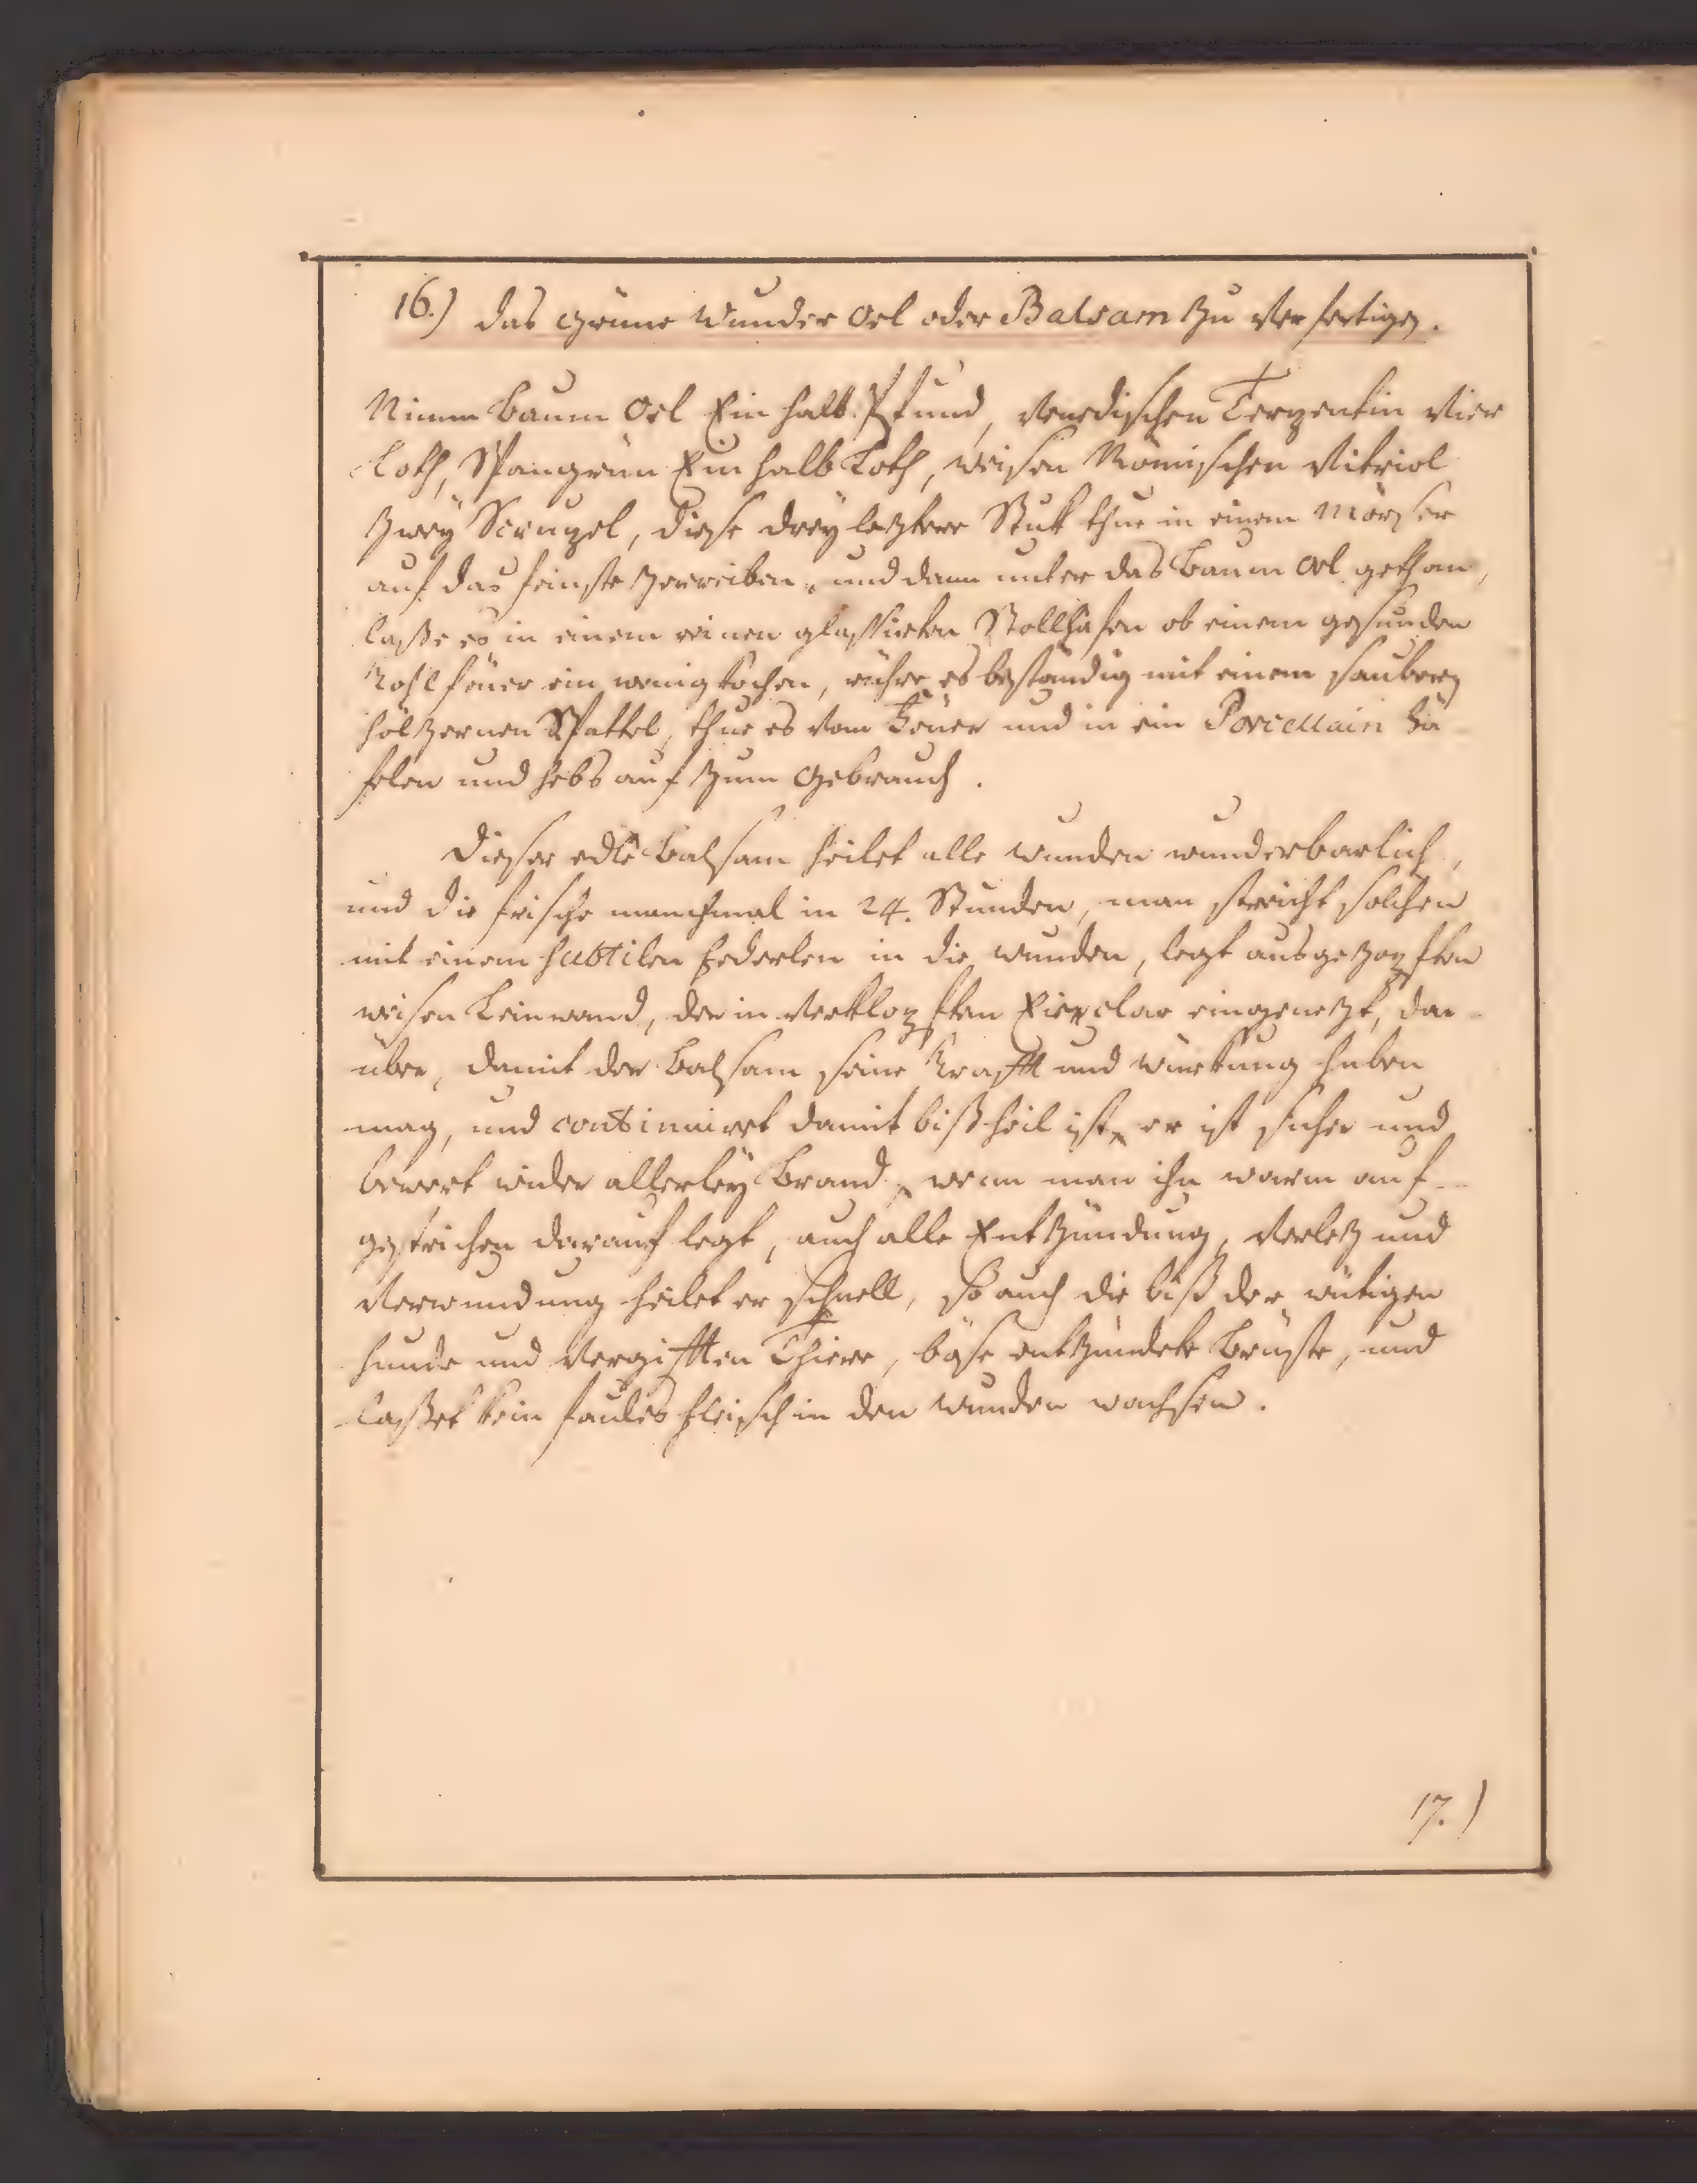 16.) das grüne Wunder Oel oder Balsam zu verfertigen.
Nimm Baum Oel Ein halb Pfund, Venedischen Terpentin vier
Loth, Spangrün Ein halb Loth, weisen Römischen Vitriol
zweÿ Scrupel, diese dreÿ leztere Stuk thue in einem Mörser
auf das feinste zerreiben, und dann unter das Baum Oel gethan,
laße es in einem reinen glassürten Stollhafen ob einem gesunden
Kohlfeüer ein wenig kochen, rühre es beständig mit einem saubern
hölzernen Spattel, thue es vom Feüer und in ein Porcellain Hä-
felen und hebs auf zum Gebrauch.
Dieser edle Balsam heilet alle Wunden wunderbarlich,
und die frische manchmal in 24. Stunden, man streicht solchen
mit einem subtilen Federlen in die Wunden, legt ausgezopften
weisen Leinwand, der in verklopften Eierclar eingenezt, dar-
über, damit der Balsam seine Krafft und würkung haben
mag, und continuirt damit biß heil ist, er ist sicher und
bewert wider allerleÿ Brand, wenn man ihn warm auf-
gestrichen darauf legt, auch alle Entzündung, verletz und
Verwundung heilet er schnell, so auch die biß der wütigen
hunde und vergifften Thiere, böse entzündete Brüste, und
laßet kein faules fleisch in den Wunden wachsen.
17.)